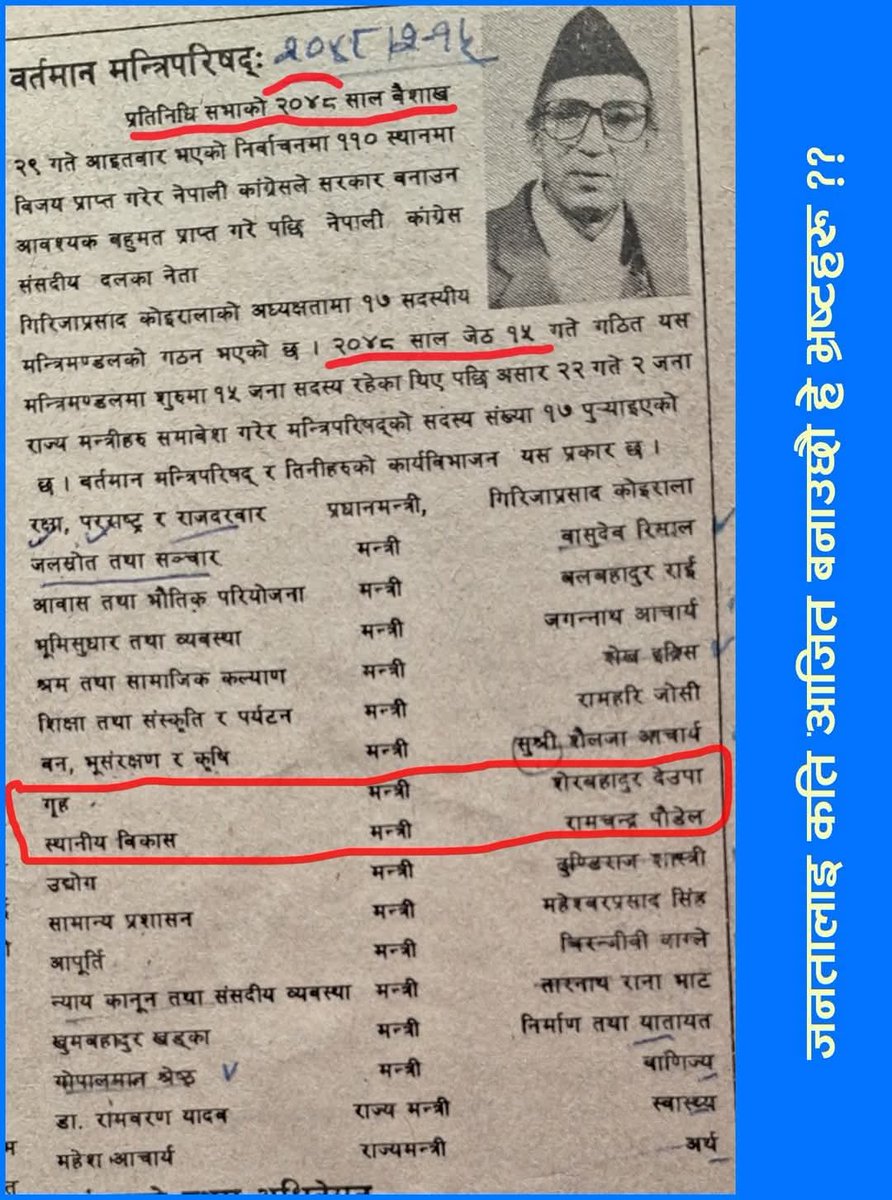 वर्तमान मन्त्रिपरिषद्: २०४८।२-१५
प्रतिनिधि सभाको २०४८ साल बैशाख
२९ गते आइतबार भएको निर्वाचनमा ११० स्थानमा
विजय प्राप्त गरेर नेपाली कांग्रेसले सरकार बनाउन
आवश्यक बहुमत प्राप्त गरे पछि नेपाली कांग्रेस
संसदीय दलका नेता
गिरिजाप्रसाद कोइरालाको अध्यक्षतामा १७ सदस्यीय
मन्त्रिमण्डलको गठन भएको छ । २०४८ साल जेठ १५ गते गठित यस
मन्त्रिमण्डलमा शुरुमा १५ जना सदस्य रहेका थिए पछि असार २२ गते २ जना
राज्य मन्त्रीहरु समाबेश गरेर मन्त्रिपरिषद्को सदस्य संख्या १७ पुर्‍याइएको
छ । बर्तमान मन्त्रिपरिषद् र तिनीहरुको कार्यविभाजन यस प्रकार छ ।
रक्षा, परराष्ट्र र राजदरबार प्रधानमन्त्री, गिरिजाप्रसाद कोइराला
जलस्रोत तथा सञ्चार मन्त्री बासुदेव रिसाल
आवास तथा भौतिक परियोजना मन्त्री बलबहादुर राई
भूमिसुधार तथा व्यबस्था मन्त्री जगन्नाथ आचार्य
श्रम तथा सामाजिक कल्याण मन्त्री शेख इद्रिस
शिक्षा तथा संस्कृति र पर्यटन मन्त्री रामहरि जोसी
बन, भूसंरक्षण र कृषि मन्त्री (सुश्री शैलजा आचार्य
गृह मन्त्री शेरबहादुर देउपा
स्थानीय बिकास मन्त्री रामचन्द्र पौडेल
उद्योग मन्त्री ढुण्डिराज शास्त्री
सामान्य प्रशासन मन्त्री महेश्बरप्रसाद सिंह
आपूर्ति मन्त्री चिरन्जीवी वाग्ले
न्याय कानून तथा संसदीय व्यबस्था मन्त्री तारनाथ राना भाट
खुमबहादुर खड्का मन्त्री निर्माण तथा यातायत
गोपालमान श्रेष्ठ मन्त्री बाणिज्य
डा. रामबरण यादब राज्य मन्त्री स्बास्थ्य
महेश आचार्य राज्यमन्त्री अर्थ
जनतालाइ कति आजित बनाउछौ है भ्रष्टहरू ??